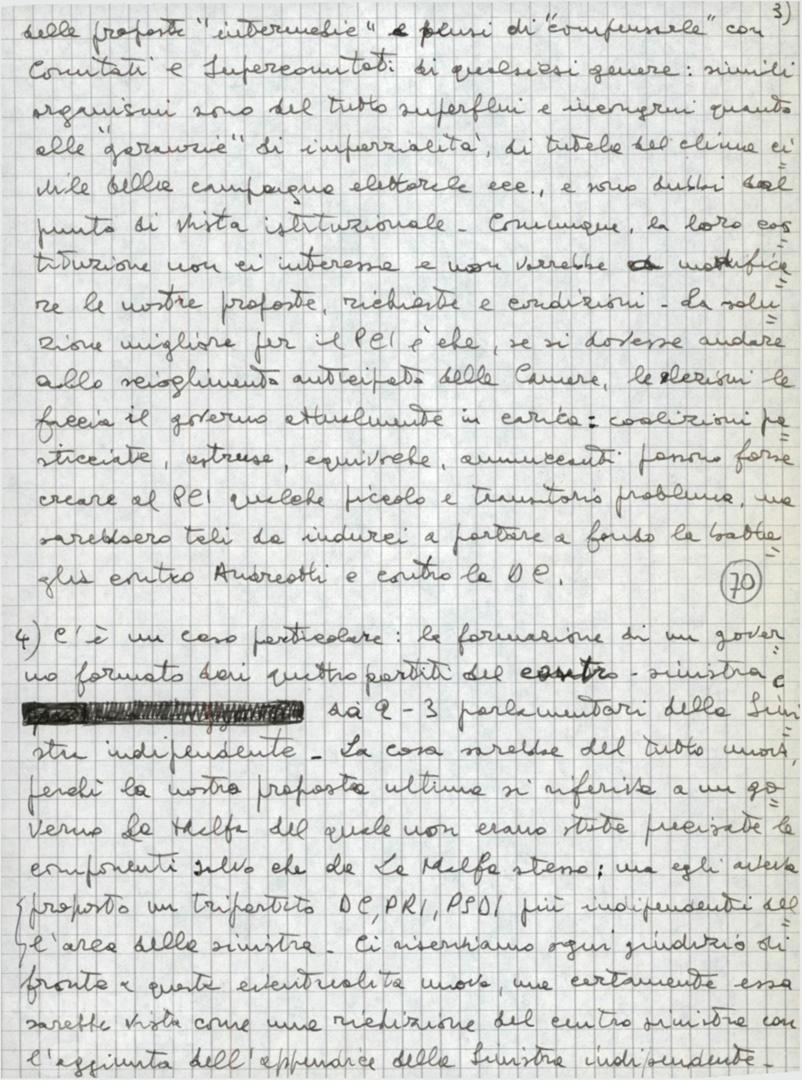 3)
delle proposte "intermedie" e plusi di "compensarle" con
Comitati e Supercomitati di qualsiasi genere: simili
organismi sono del tutto superflui e incongrui quanto
alle "garanzie" di imparzialità, di tutela del clima ci=
vile della campagna elettorale ecc., e sono dubbi dal
punto di vista istituzionale - Comunque, la loro cos=
tituzione non ci interessa e non varrebbe a modifica=
re le nostre proposte, richieste e condizioni - La solu=
zione migliore per il PCI è che, se si dovesse andare
allo scioglimento anticipato delle Camere, le elezioni le
faccia il governo attualmente in carica: coalizioni pa=
sticciate, astruse, equivoche, ammuccanti possono forse
creare al PCI qualche piccolo e transitorio problema, ma
sarebbero tali da indurci a portare a fondo la batta=
glia contro Andreotti e contro la DC.
70
4) C'è un caso particolare: la formazione di un gover=
no formato dai quattro partiti del centro-sinistra e
da 2-3 parlamentari della Sini=
stra indipendente - La cosa sarebbe del tutto nuova,
perché la nostra proposta ultima si riferiva a un go=
verno La Malfa del quale non erano state precisate le
componenti salvo che da La Malfa stesso; ma egli aveva
proposto un tripartito DC, PRI, PSDI più indipendenti del=
l'area della sinistra - Ci riserviamo ogni giudizio di
fronte a questa eventualità nuova, ma certamente essa
sarebbe vista come una riedizione del centro sinistra con
l'aggiunta dell'appendice della Sinistra indipendente -